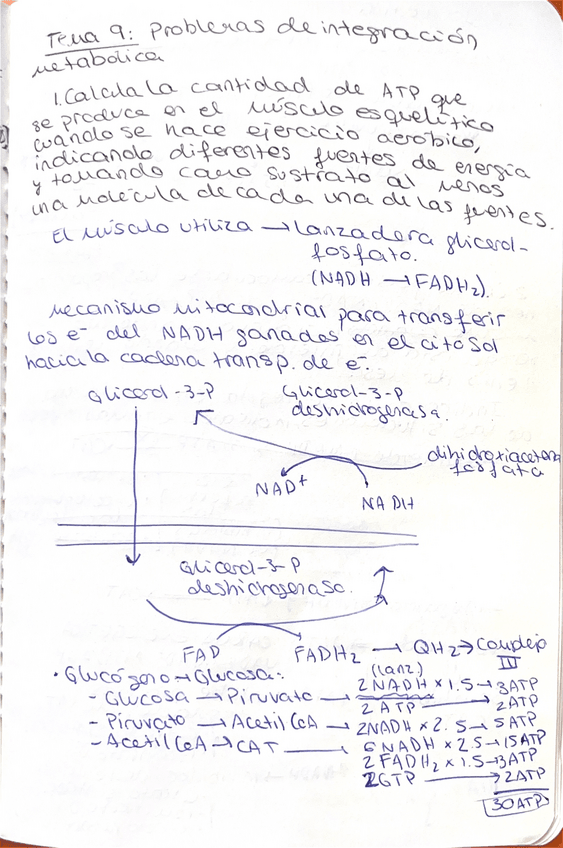 Tema 9: Problemas de integración
metabólica
1. Calcula la cantidad de ATP que
se produce en el músculo esquelético
cuando se hace ejercicio aeróbico,
indicando diferentes fuentes de energía
y tomando como sustrato al menos
una molécula de cada una de las fuentes.
El músculo utiliza → lanzadera glicerol-
fosfato.
(NADH → FADH₂).
Mecanismo mitocondrial para transferir
los e⁻ del NADH ganados en el citosol
hacia la cadena transp. de e⁻.
Glicerol-3-P Glicerol-3-P
deshidrogenasa.
dihidroxiacetona
fosfato
NAD⁺
NADH
Glicerol-3-P
deshidrogenasa.
FAD FADH₂ → QH₂ → Complejo
(lanz.) III
• Glucógeno → Glucosa:
- Glucosa → Piruvato → 2 NADH × 1.5 → 3ATP
2 ATP → 2ATP
- Piruvato → Acetil CoA → 2NADH × 2.5 → 5ATP
- Acetil CoA → CAT → 6 NADH × 2.5 → 15ATP
2 FADH₂ × 1.5 → 3ATP
2GTP → 2ATP
30ATP